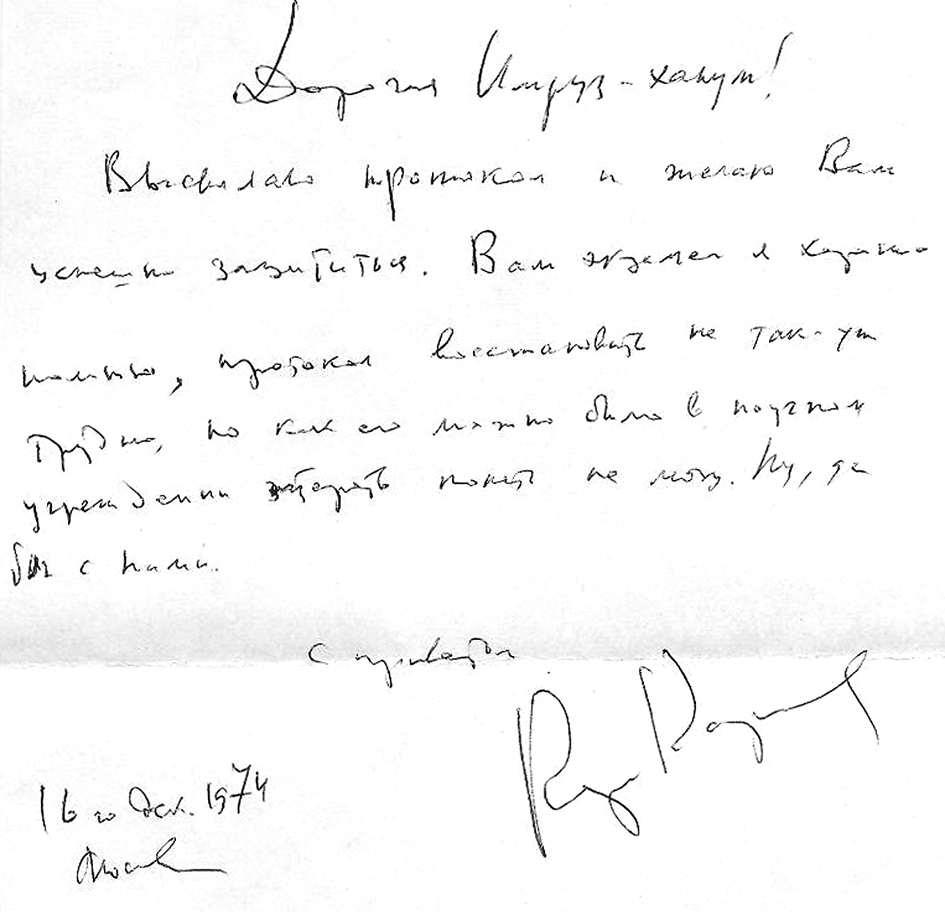 Дорогая Ингуз-ханум!
Высылаю протокол и желаю Вам
успешно защититься. Ваш экзамен я хорошо
помню, протокол восстановить не так-уж
трудно, но как его можно было в научном
учреждении затерять понять не могу. Ну, да
бог с ними.
С приветом
16 го дек. 1974
Москва